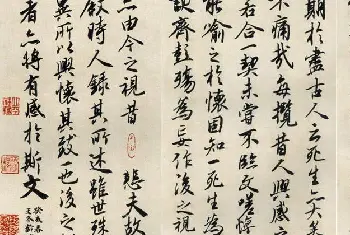 期於盡古人云死生亦大矣
不痛哉每攬昔人興感之
若合一契未嘗不臨文嗟悼
能喻之於懷固知一死生為
誕齊彭殤為妄作後之視
亦由今之視昔 悲夫故
敘時人錄其所述雖世殊
異所以興懷其致一也後之
者亦將有感於斯文